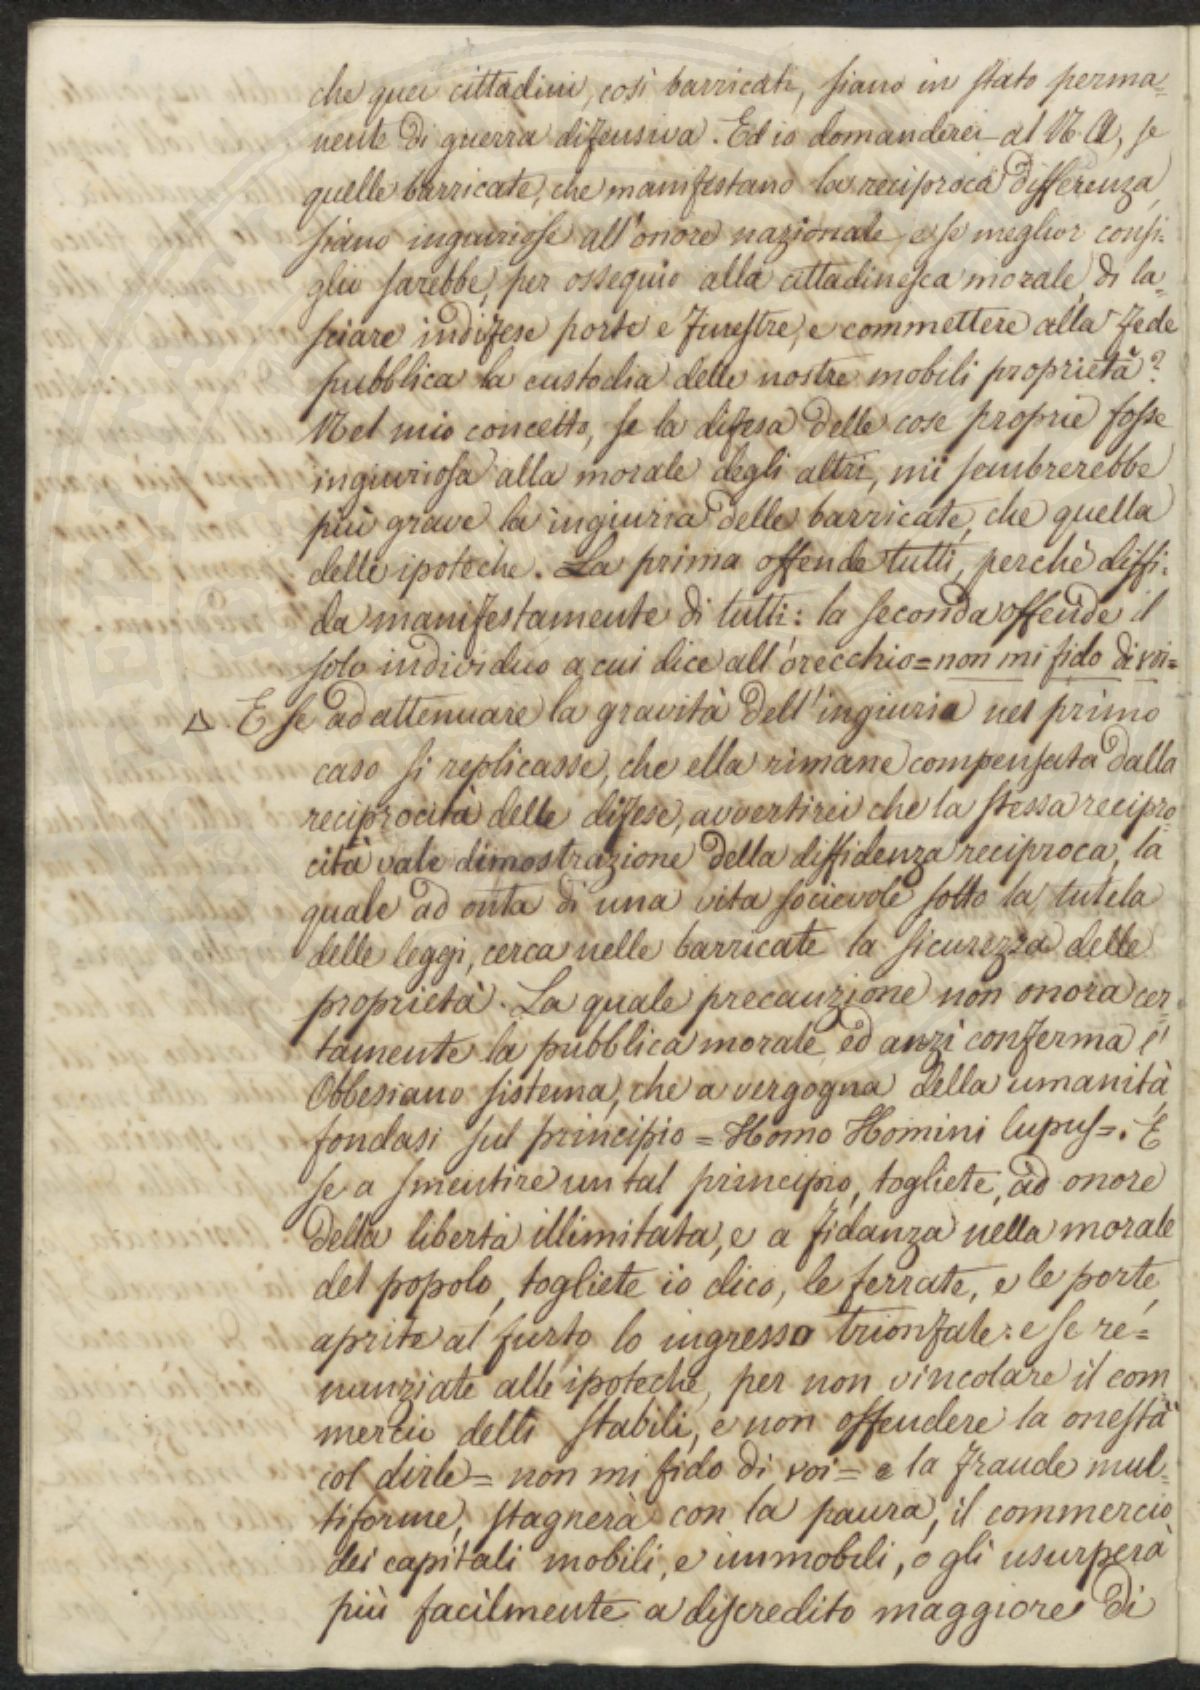 che quei cittadini, così barricati, siano in stato perma=
nente di guerra difensiva. Ed io domanderei al N. A., se
quelle barricate, che manifestano la reciproca differenza,
siano ingiuriose all'onore nazionale, e se meglior consi=
glio sarebbe, per ossequio alla cittadinesca morale, di la=
sciare indifese porte e finestre, e commettere alla fede
pubblica la custodia delle nostre mobili proprietà?
Nel mio concetto, se la difesa delle cose proprie fosse
ingiuriosa alla morale degli altri, mi sembrerebbe
più grave la ingiuria delle barricate, che quella
delle ipoteche. La prima offende tutti, perchè diffi=
da manifestamente di tutti: la seconda offende il
solo individuo a cui dice all'orecchio = non mi fido di voi =
Δ. E se ad attenuare la gravità dell'ingiuria nel primo
caso si replicasse, che ella rimane compensata dalla
reciprocità delle difese, avvertirei che la stessa recipro=
cità vale dimostrazione della diffidenza reciproca, la
quale ad onta di una vita socievole sotto la tutela
delle leggi, cerca nelle barricate la sicurezza delle
proprietà. La quale precauzione non onora cer=
tamente la pubblica morale, ed anzi conferma l'
Obbesiano sistema, che a vergogna della umanità
fondasi sul principio = Homo Homini lupus =. E
se a smentire un tal principio, togliete, ad onore
della libertà illimitata, e a fidanza nella morale
del popolo, togliete io dico, le ferrate, e le porte,
aprite al furto lo ingresso trionfale: e se re=
nunziate alle ipoteche, per non vincolare il com
mercio delli stabili, e non offendere la onestà
col dirle = non mi fido di voi = e la fraude mul=
tiforme, stagnerà con la paura, il commercio
dei capitali mobili, e immobili, o gli usurperà
più facilmente a discredito maggiore di